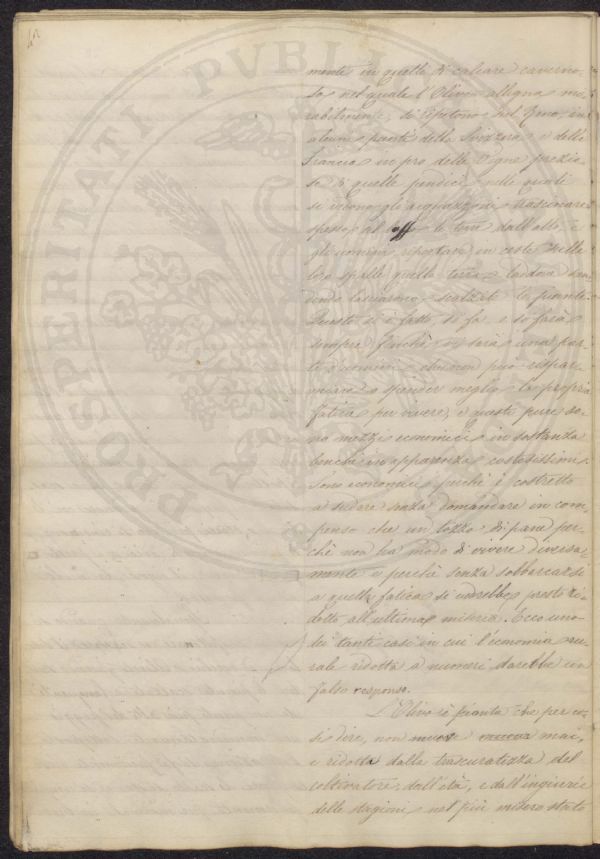 PROSPERITATI PVBLI
mente in quelli di calcare caverno-
so nel quale l'Olivo alligna mi-
rabilmente, si ripetono nel in
alcuni punti della Svizzera, e della
Francia in pro delle Vigne prezio-
se di quelle pendici, nelle quali
si vicono gli acquazzoni trascinare
spesso al le terre dall'alto, e
gli uomini riportare in ceste sulle
loro spalle quelle terre laddove
dendo lasciarono scalzate le piante.
Questo si è fatto, si fa e si farà
sempre finchè vi sarà una par-
te d'uomini che non può rispar-
miare o spender meglio la propria
fatica per vivere, e questi pure so-
no mezzi economici in sostanza
benchè in apparenza costosissimi,
sono economici perchè è costretto
a sudare senza domandare in com-
penso che un tozzo di pane per-
chè non ha modo di vivere diversa-
mente e perchè senza sobbarcarsi
a quella fatica si vedrebbe presto ri-
dotto all'ultima miseria. Ecco uno
dei tanti casi in cui l'economia ru-
rale ridotta a numeri darebbe un
falso responso.
L'Olivo è pianta che per co-
sì dire, non muore mai,
e ridotta dalla trascuratezza del
coltivatore, dall'età, e dall'ingiurie
delle stagioni nel più misero stato